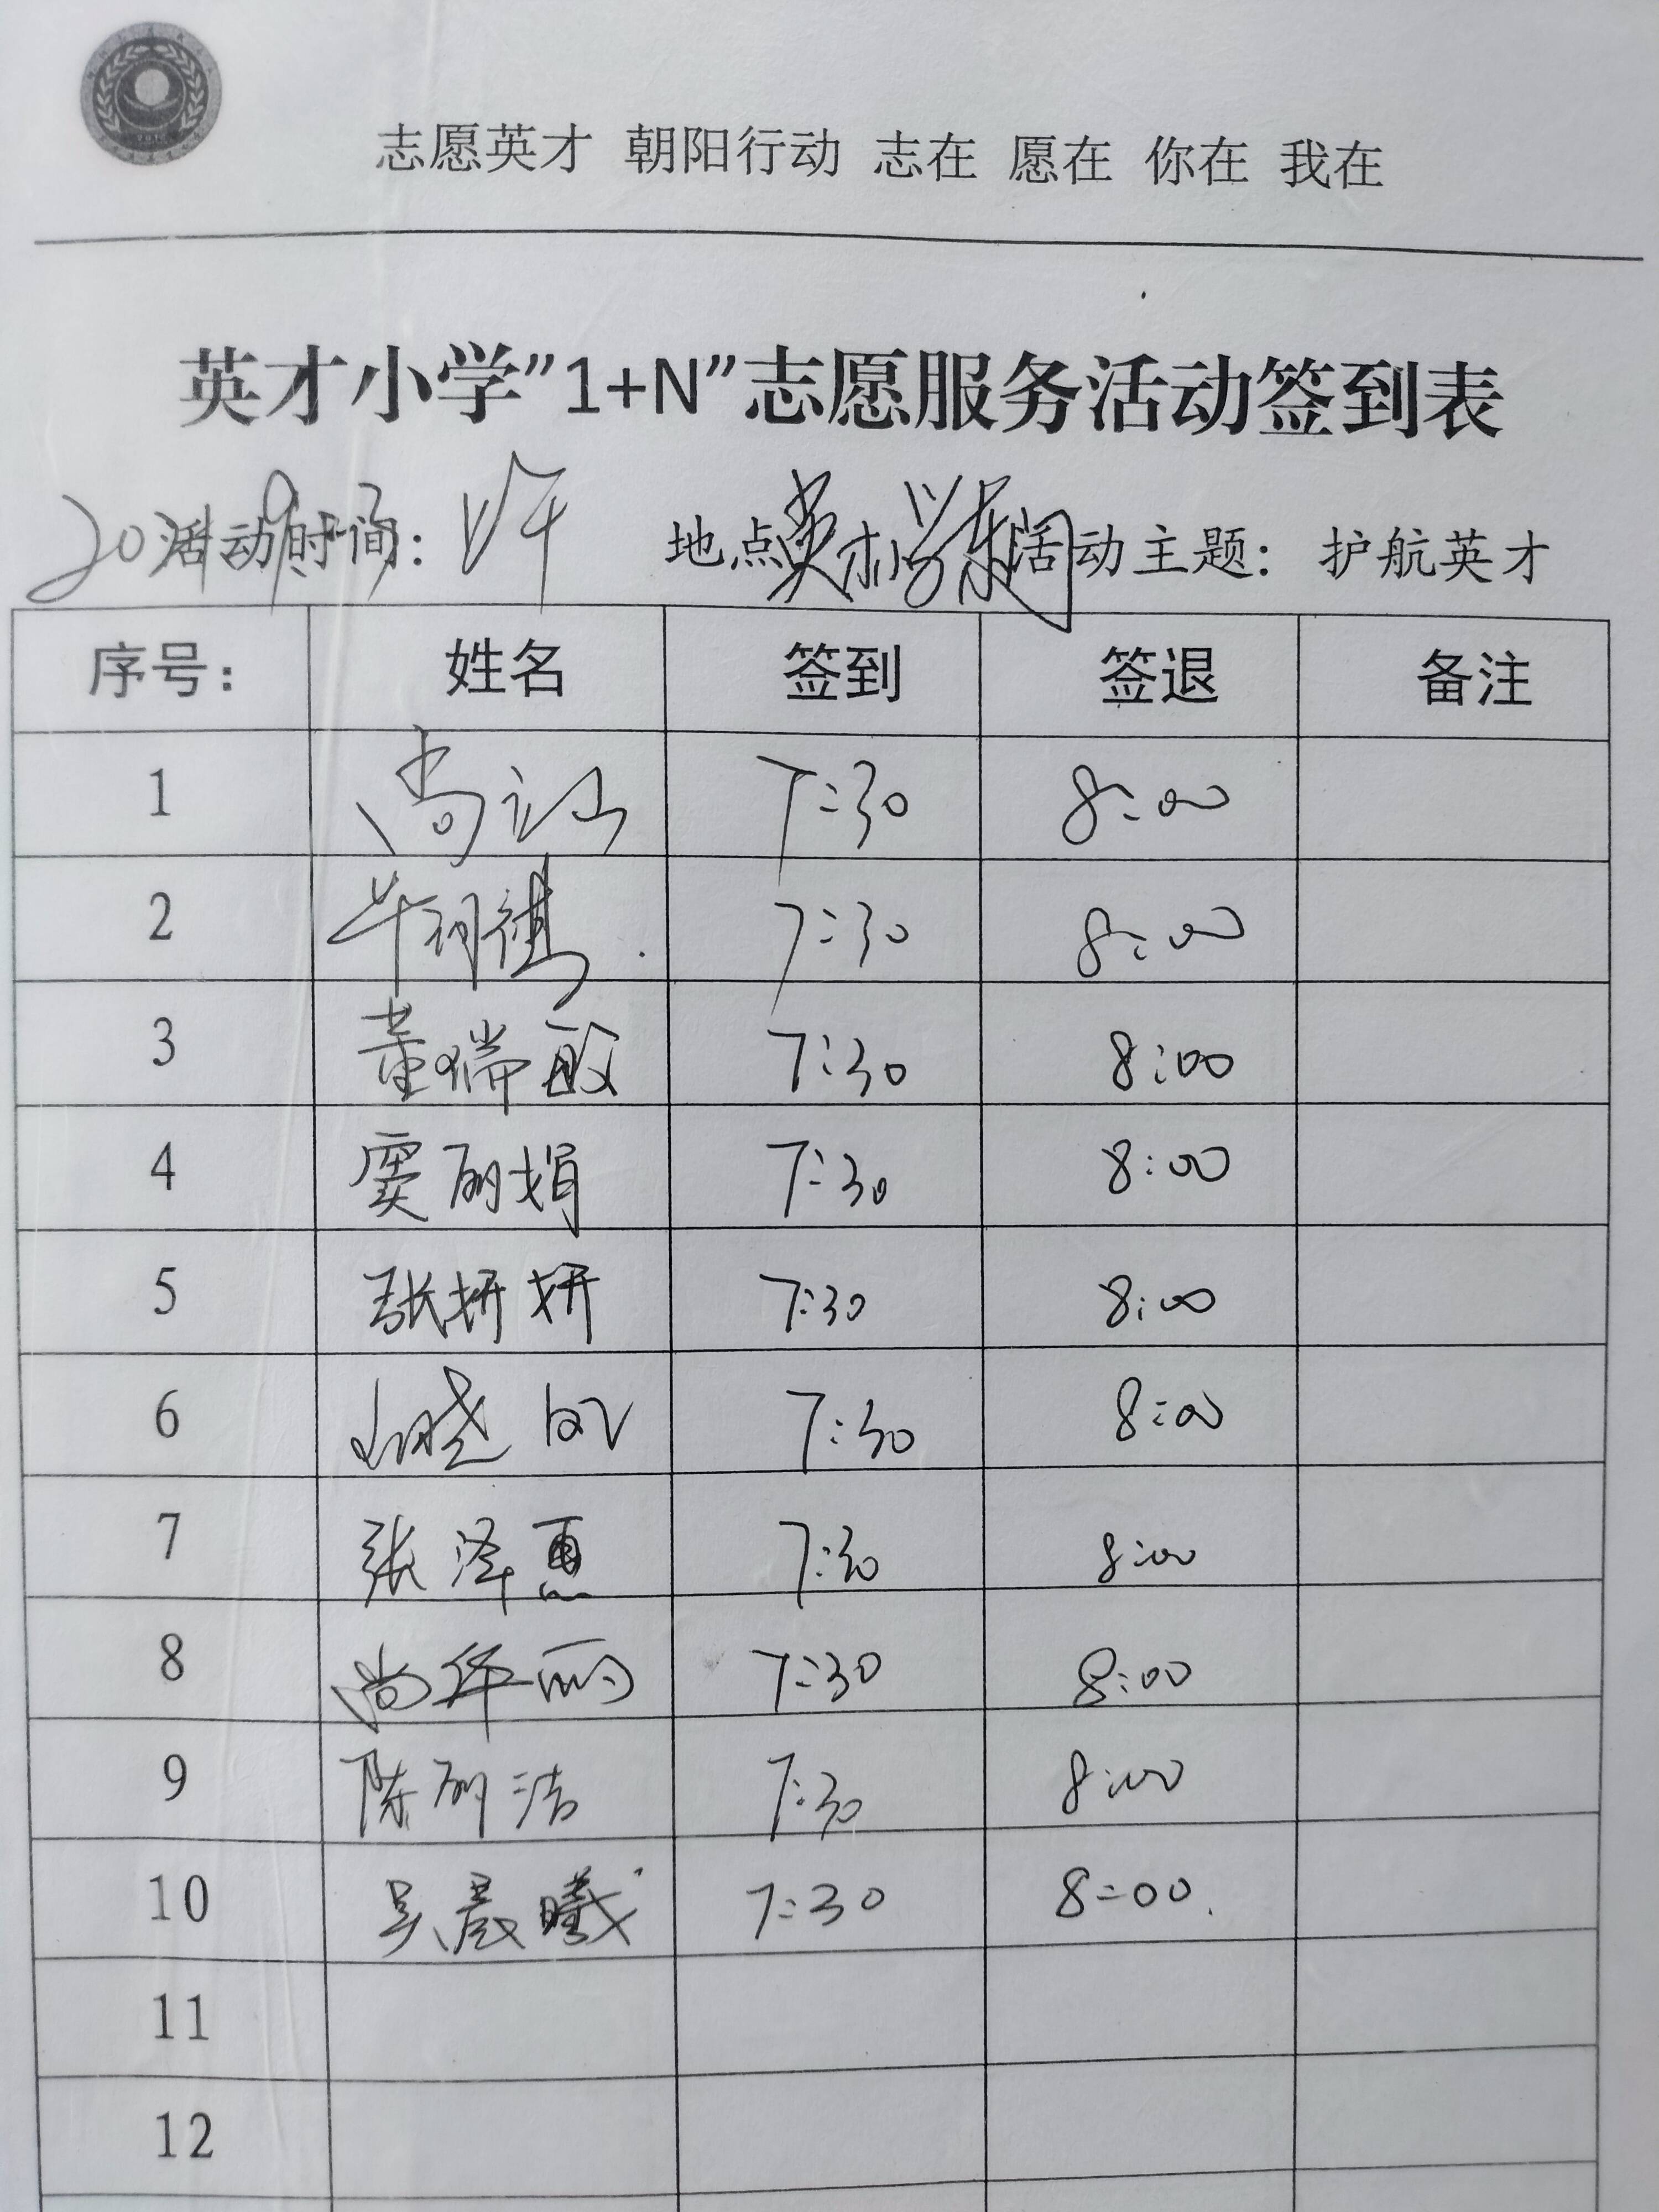 志愿英才 朝阳行动 志在 愿在 你在 我在
英才小学”1+N”志愿服务活动签到表
活动时间： 地点 活动主题： 护航英才
序号： 姓名 签到 签退 备注
1 7:30 8:00
2 7:30 8:00
3 董瑞敏 7:30 8:00
4 窦丽娟 7:30 8:00
5 张妍妍 7:30 8:00
6 7:30 8:00
7 张泽惠 7:30 8:00
8 尚华丽 7:30 8:00
9 陈丽洁 7:30 8:00
10 吴晨曦 7:30 8:00
11
12